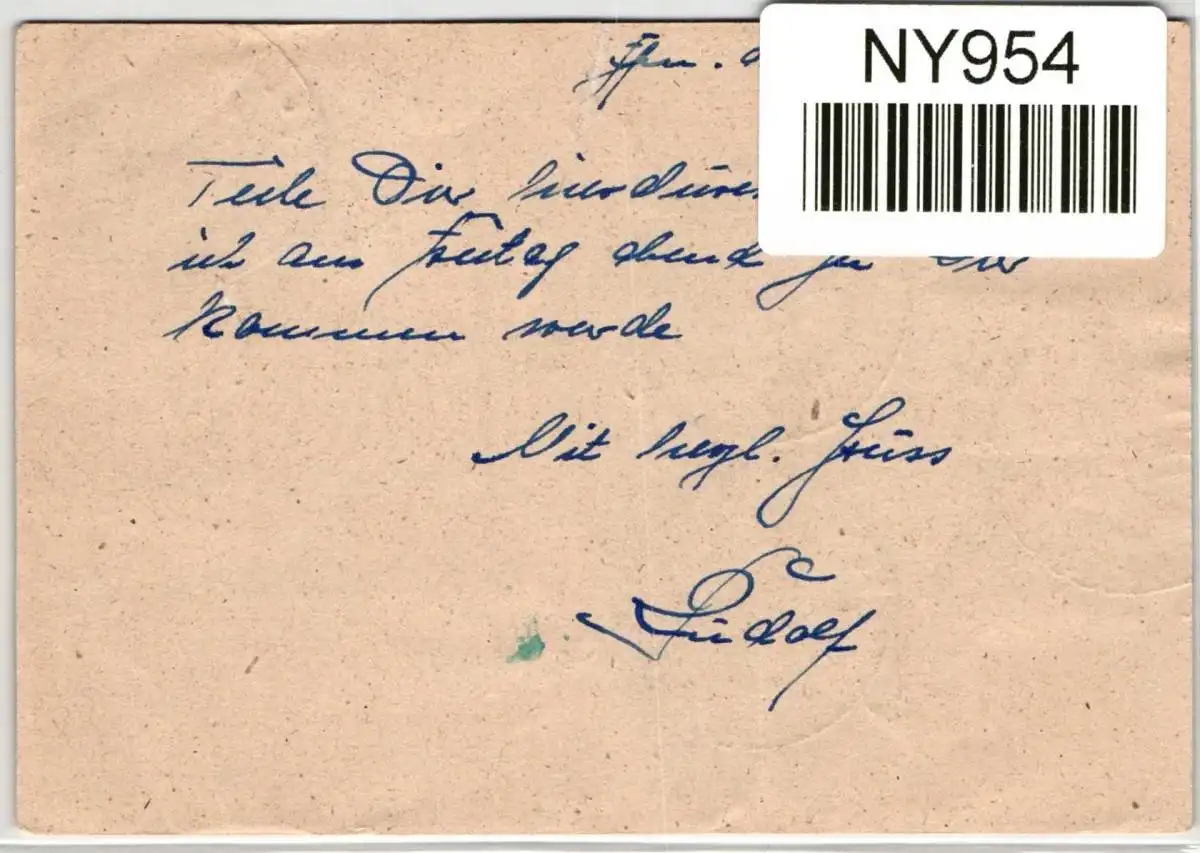 Ffm. d
NY954
Teile Dir hierdurch
ich am Freitag abend zu Dir
kommen werde
Mit herzl. Grüss
Rudolf